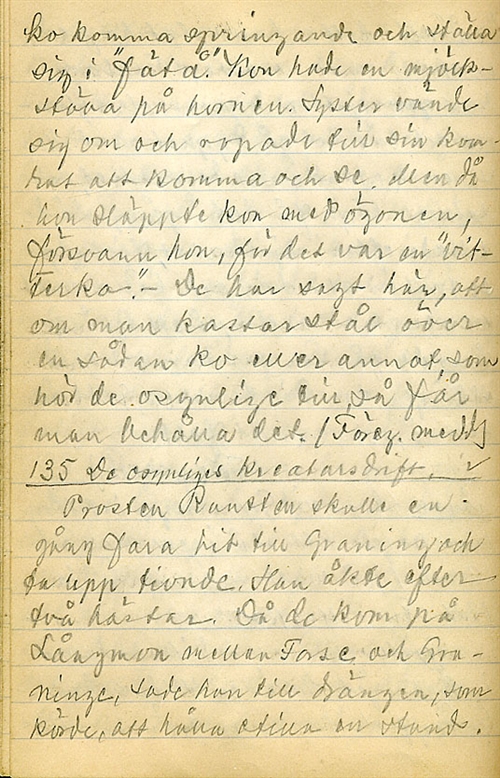 ko komma springande och ställa
sig i "fäta". Kon hade en mjölk-
stäva på hornen. Syster vände
sig om och ropade till sin kam-
rat att komma och se. Men då
hon släppte kon med ögonen,
försvann hon, för det var en "vit-
terko". – De har sagt här, att
om man kastar stål över
en sådan ko eller annat, som
hör de osynlige till, så får
man behålla det. (Föreg. medd)
135 De osynliges kreatursdrift.
Prosten Runsten skulle en
gång fara hit till Graninge och
ta upp tionde. Han åkte efter
två hästar. Då de kom på
Långmon mellan Forse och Gra-
ninge, sade han till drängen, som
körde, att hålla stilla en stund.